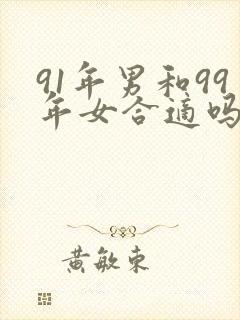 91年男和99
年女合适吗
黄敏东